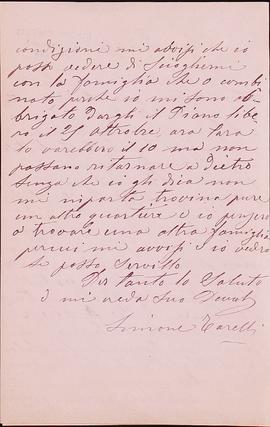 condizioni mi avvisi che io
posso vedere di Sciogliermi
con la famiglia che o combi
nato perche io mi sono ob
brigato Dargli il Piano libe
ro il 25 ottobre, ora
lo varebbero il 10 ma non
possano ritornare a dietro
senza che io gli dica non
mi niporta trovina pure
un altro quartiere e io penserò
a trovare una altra famiglia
percui mi avvisi e io vedrò
se posso Servillo
Per tanto lo Saluto
e mi creda Suo Devot
Simone Tarelli